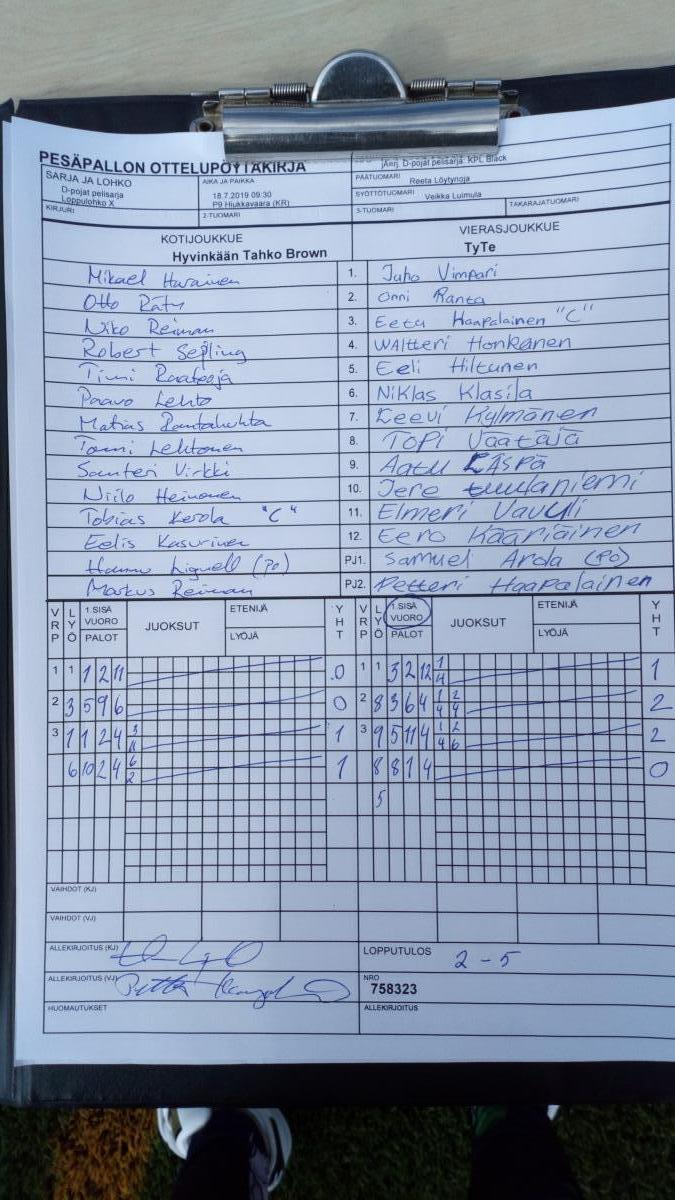 PESÄPALLON OTTELUPÖYTÄKIRJA
järj. D-pojat pelisarja: KPL Black
SARJA JA LOHKO
D-pojat pelisarja
Loppulohko X
AIKA JA PAIKKA
18.7.2019 09:30
P9 Hiukkavaara (KR)
PÄÄTUOMARI Reeta Löytynoja
SYÖTTÖTUOMARI Veikka Luimula
KIRJURI
2-TUOMARI
3-TUOMARI
TAKARAJATUOMARI
KOTIJOUKKUE
Hyvinkään Tahko Brown
VIERASJOUKKUE
TyTe
Mikael 1. Juho Vimpari
Otto Räty 2. Onni Ranta
Niko Reiman 3. Eetu Haapalainen "C"
Robert Sepling 4. Waltteri Honkanen
Timi 5. Eeli Hiltunen
Paavo Lehto 6. Niklas Klasila
Matias Rantahuhta 7. Eeevi Kylmänen
Tomi Lehtonen 8. Topi Väätäjä
Santeri Virkki 9. Aatu Läspä
Niilo Heinonen 10. Jere tuulaniemi
Tobias Kerola "C" 11. Elmeri Vavuli
Eelis Kasurinen 12. Eero Kääriäinen
Hannu Liguell (Po) PJ1. Samuel Arola (Po)
Markus Reiman PJ2. Petteri Haapalainen
VRP LYÖ 1.SISÄ VUORO PALOT JUOKSUT ETENIJÄ LYÖJÄ YHT VRP LYÖ 1.SISÄ VUORO PALOT JUOKSUT ETENIJÄ LYÖJÄ YHT
1 1 1 2 11 0 1 1 3 2 12 1/4 1
2 3 5 9 6 0 2 8 3 6 4 1/4 2/4 2
3 1 1 2 4 3/11 1 3 9 5 11 4 1/4 2/6 2
6 10 2 4 6/2 1 8 8 1 4 0
5
VAIHDOT (KJ)
VAIHDOT (VJ)
ALLEKIRJOITUS (KJ)
LOPPUTULOS 2 - 5
ALLEKIRJOITUS (VJ)
NRO
758323
HUOMAUTUKSET
ALLEKIRJOITUS